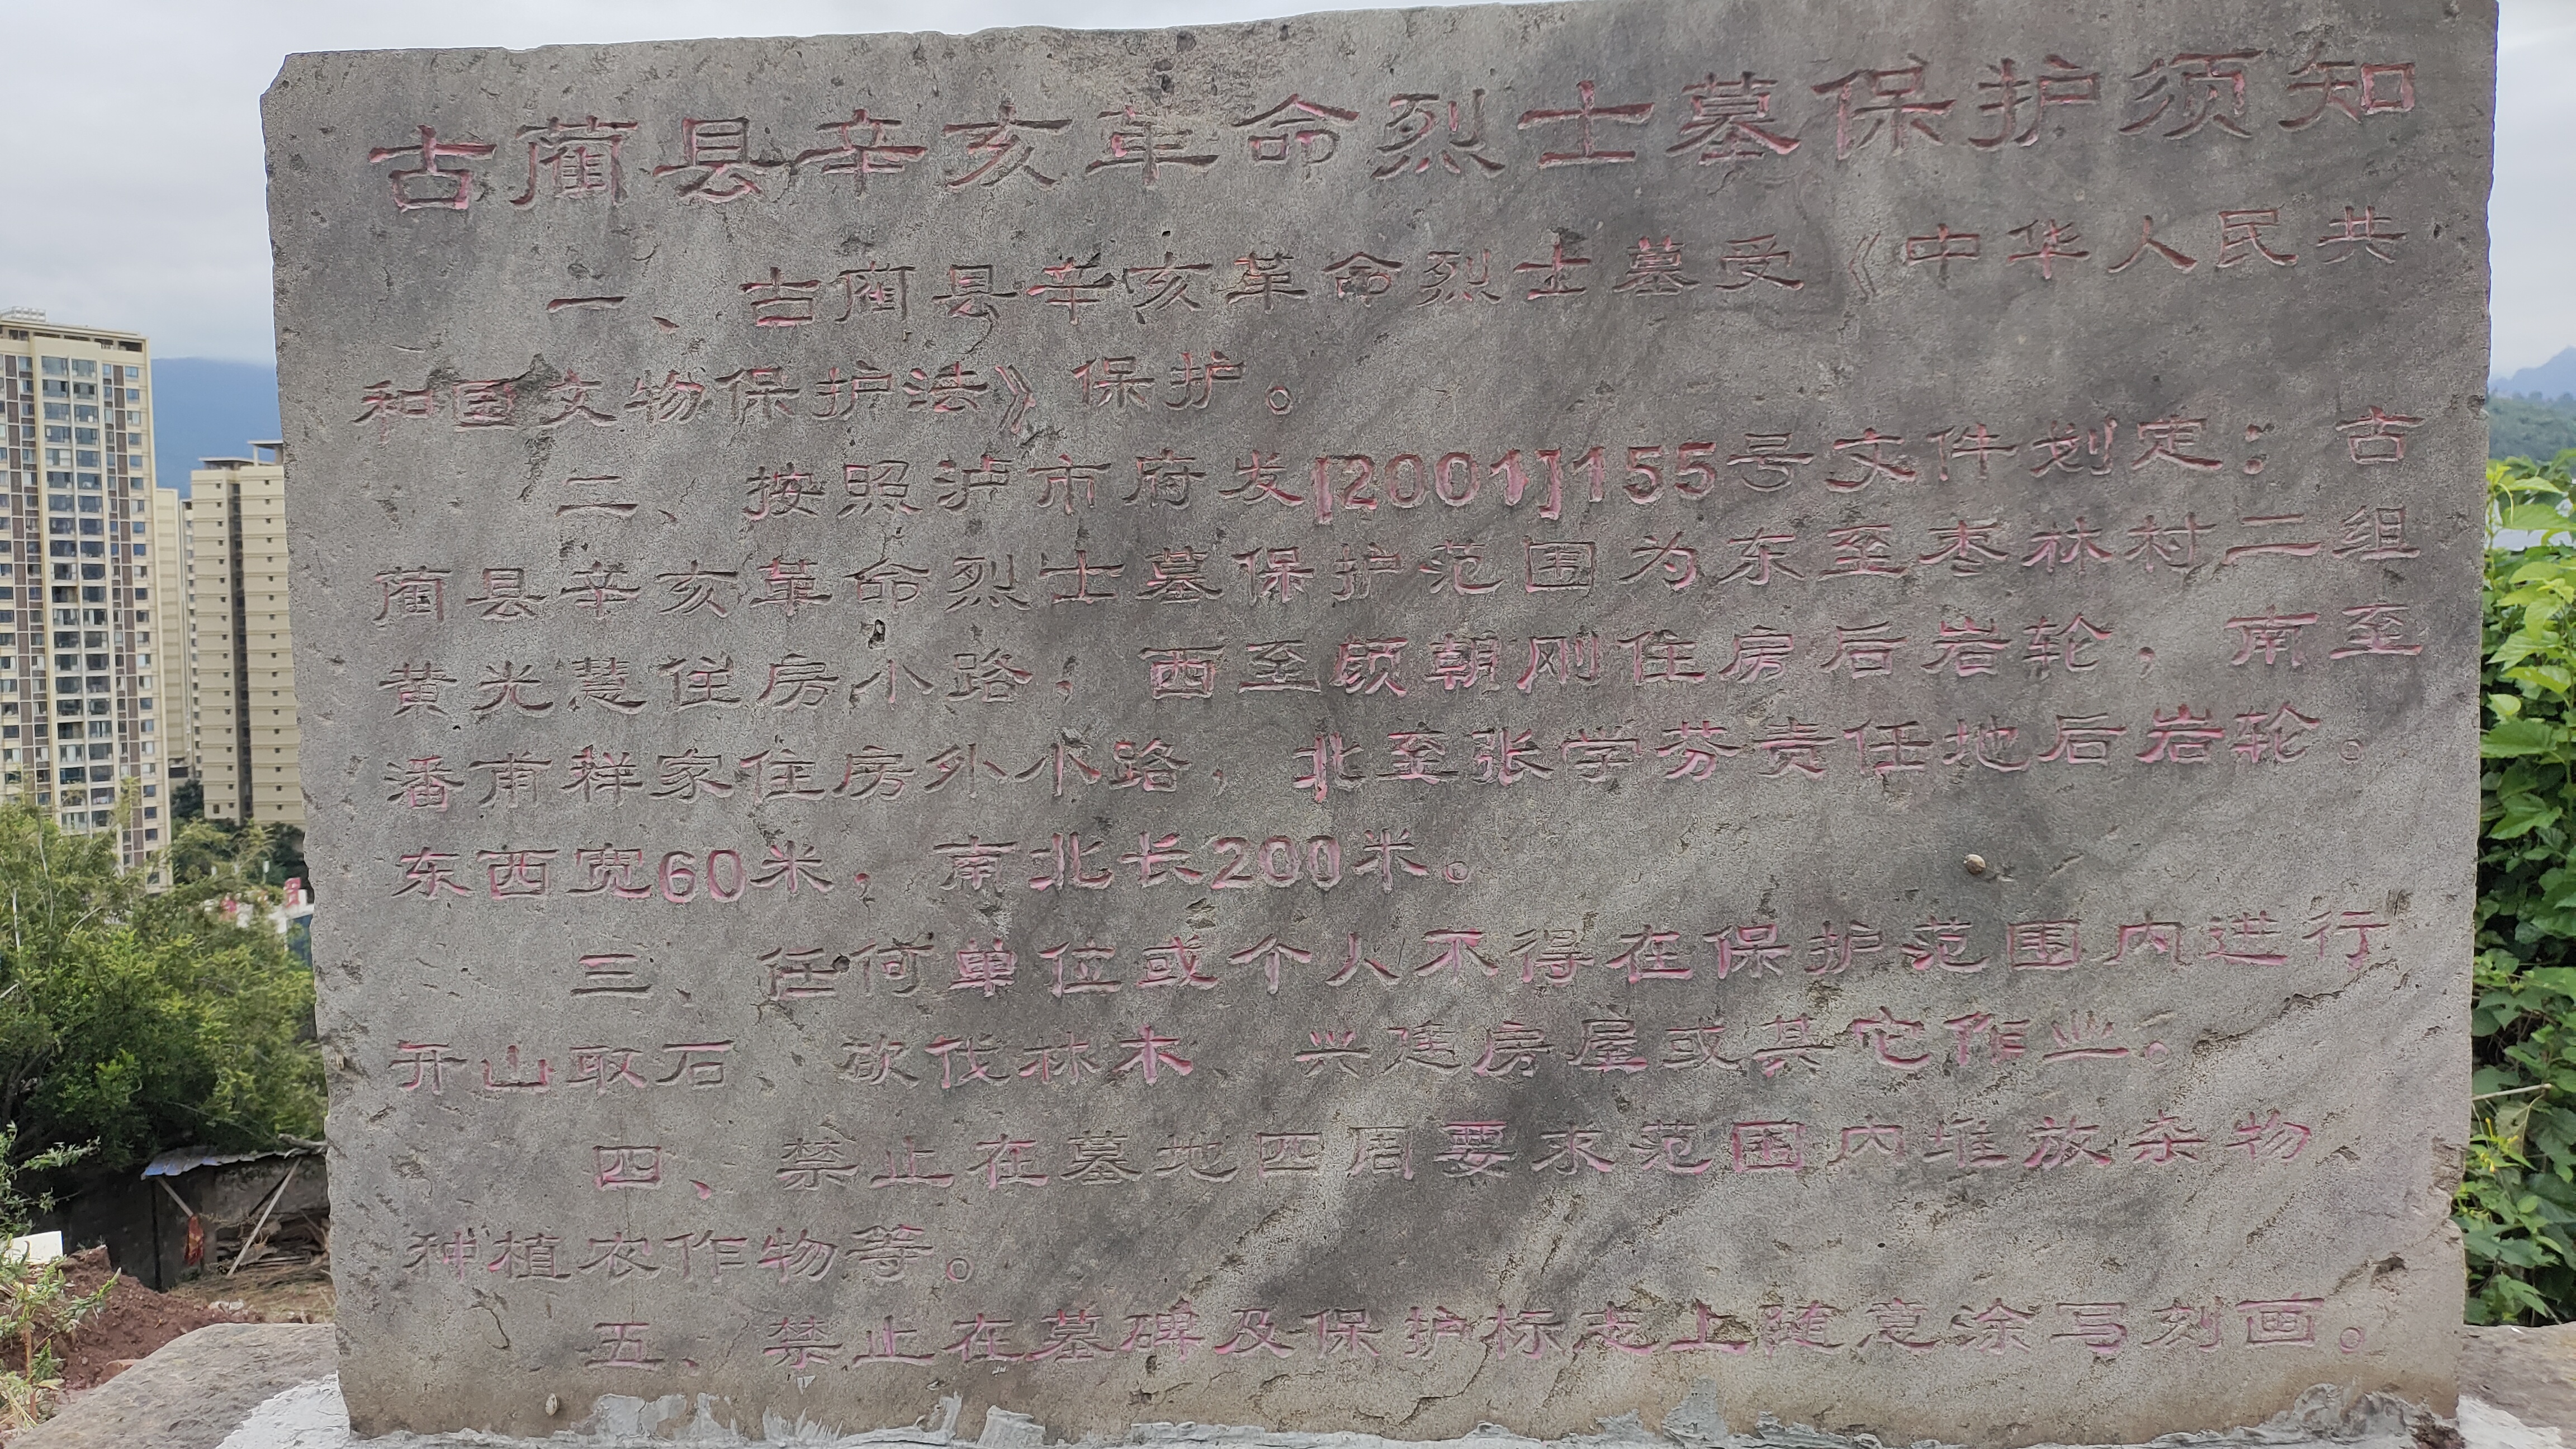 古蔺县辛亥革命烈士墓保护须知
一、古蔺县辛亥革命烈士墓受《中华人民共
和国文物保护法》保护。
二、按照泸市府发[2001]155号文件划定：古
蔺县辛亥革命烈士墓保护范围为东至枣林村二组
黄光慧住房小路；西至颜朝刚住房后岩轮，南至
潘甫祥家住房外小路，北至张学芬责任地后岩轮。
东西宽60米，南北长200米。
三、任何单位或个人不得在保护范围内进行
开山取石、砍伐林木、兴建房屋或其它作业。
四、禁止在墓地四周要求范围内堆放杂物、
种植农作物等。
五、禁止在墓碑及保护标志上随意涂写刻画。